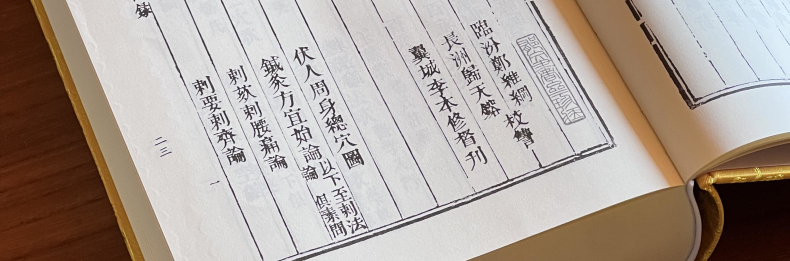 臨汾鄭維綱校讐
長洲歸天鎔
翼城李本修督刊
伏人周身總穴圖
鍼灸方宜始論論以下至刺法但素問
刺㰸刺腰痛論
刺要刺齊論
二三
一